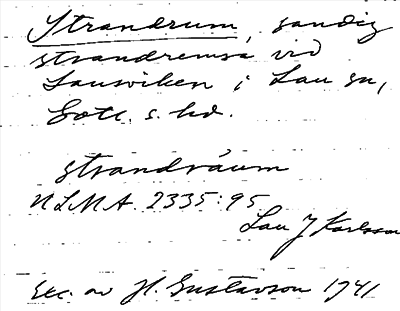 Strandrum, sandig
strandremsa vid
Lausviken i Lau sn,
Gotl. s. hd.
strandråum
NLMA. 2335:95
Lau J Karlsson
Exc. av H. Gustavson 1941